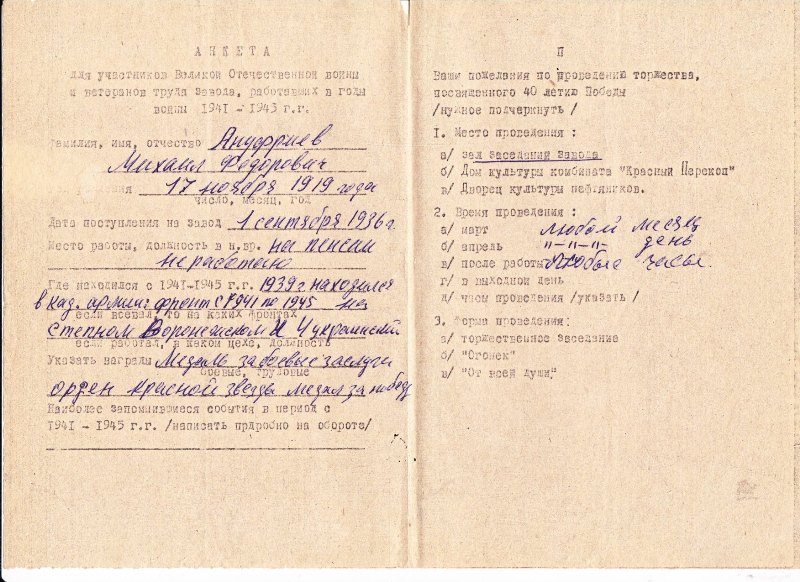 АНКЕТА
для участников Великой Отечественной войны
и ветеранов труда Завода, работавших в годы
войны 1941 - 1945 г.г.
Фамилия, имя, отчество Ануфриев
Михаил Федорович
17 ноября 1919 года
число, месяц, год
Дата поступления на завод 1 сентября 1936 г.
Место работы, должность в н.вр. на пенсии
не работаю
Где находился с 1941-1945 г.г. 1939 г находился
в кад. армии: фронт с 1941 по 1945 на
если воевал, то на каких фронтах
Степном Воронежском и 1 Украинский
если работал, в каком цехе, должность
Указать награды Медаль за боевые заслуги
боевые, трудовые
орден красной звезды медал за победу
Наиболее запомнившиеся события в период с
1941 - 1945 г.г. /написать прдробно на обороте/
П
Ваши пожелания по проведению торжества,
посвященного 40 летию Победы
/нужное подчеркнуть /
I. Место проведения :
а/ зал заседаний завода
б/ Дом культуры комбината "Красный Перекоп"
в/ Дворец культуры нефтяников.
2. Время проведения :
а/ март любой месяц
б/ апрель "-"-"- день
в/ после работы любые часы.
г/ в выходной день
д/ часы проведения /указать /
3. Форма проведения:
а/ торжественное заседание
б/ "Огонек"
в/ "От всей души"